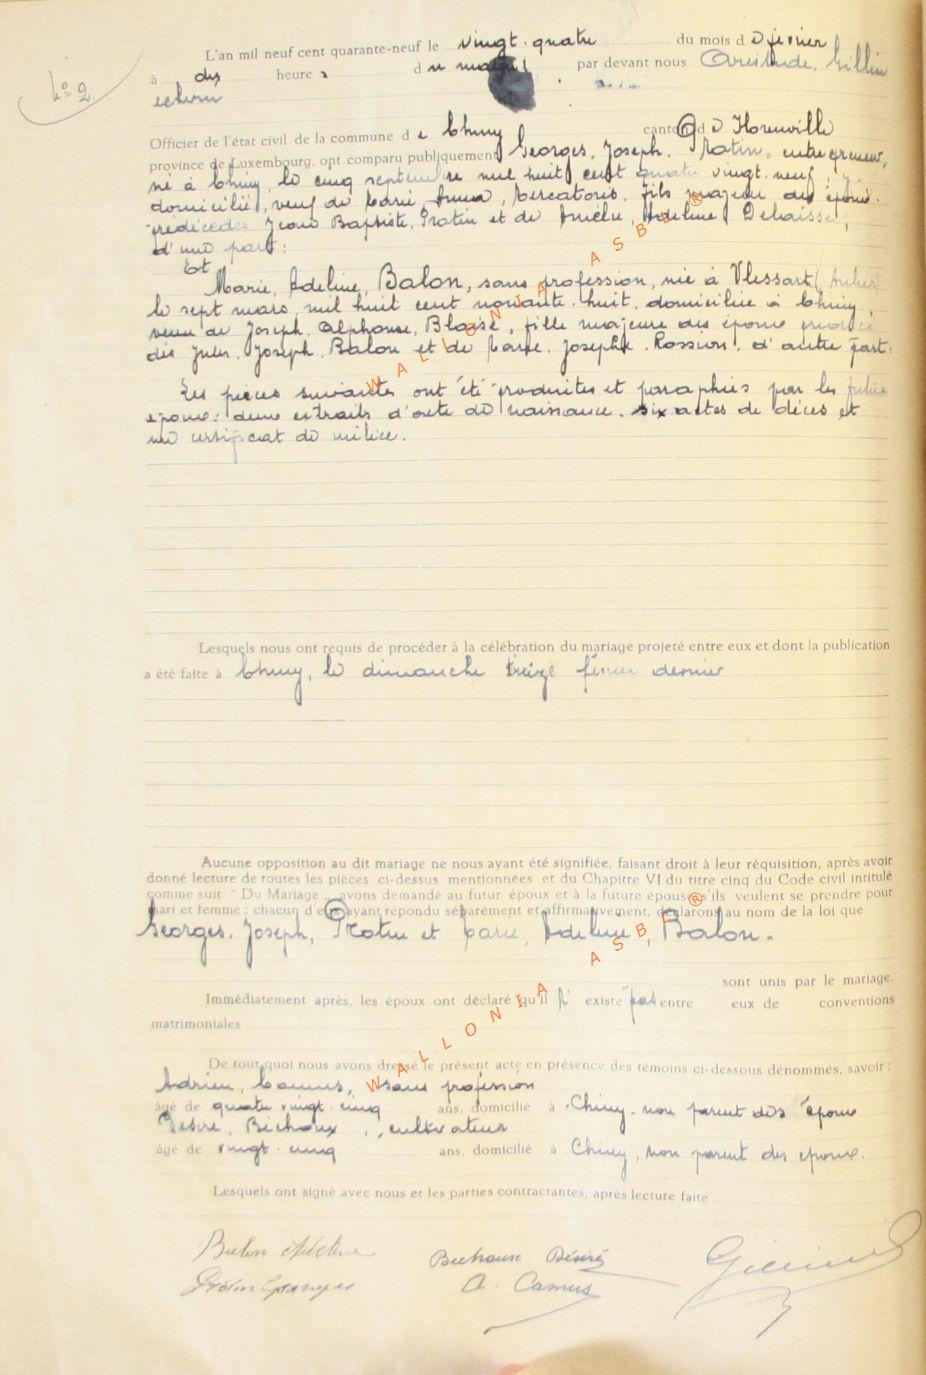 No 2.
L'an mil neuf cent quarante-neuf le vingt-quatre du mois d e février
à dix heures du matin par devant nous Aristide, Gillin
échevin
Officier de l'état civil de la commune de Chiny canton de Florenville
province de Luxembourg, ont comparu publiquement Georges, Joseph, Protin, entrepreneur,
né à Chiny, le cinq septembre mil huit cent quatre vingt-neuf, y
domicilié, veuf de Marie, Anna, Mercatoris, fils majeur des époux
prédécédés Jean Baptiste, Protin et de Amélie, Adeline, Dehaisse,
d'une part:
Et
Marie, Adeline, Balon, sans profession, née à Vlessart (Anlier)
le sept mars, mil huit cent nonante-huit, domiciliée à Chiny,
veuve de Joseph, Alphonse, Blaise, fille majeure des époux prédécé
dés Jules, Joseph, Balon et de Marie, Josèphe, Rossion, d'autre part:
Les pièces suivantes ont été produites et paraphées par les futurs
époux: deux extraits d'acte de naissance, six actes de décès et
un certificat de milice.
Lesquels nous ont requis de procéder à la célébration du mariage projeté entre eux et dont la publication
a été faite à Chiny, le dimanche treize février dernier
Aucune opposition au dit mariage ne nous ayant été signifiée, faisant droit à leur réquisition, après avoir
donné lecture de toutes les pièces ci-dessus mentionnées et du Chapitre VI du titre cinq du Code civil intitulé
comme suit " Du Mariage „ avons demandé au futur époux et à la future épouse s'ils veulent se prendre pour
mari et femme : chacun d'eux ayant répondu séparément et affirmativement, déclarons au nom de la loi que
Georges, Joseph, Protin et Marie, Adeline, Balon.
sont unis par le mariage.
Immédiatement après, les époux ont déclaré qu'il n' existe pas entre eux de conventions
matrimoniales
De tout quoi nous avons dressé le présent acte en présence des témoins ci-dessous dénommés, savoir :
Adrien, Camus, sans profession
âgé de quatre vingt-cinq ans, domicilié à Chiny, non parent des époux
Désiré, Bichoux, cultivateur
âgé de vingt-cinq ans, domicilié à Chiny, non parent des époux.
Lesquels ont signé avec nous et les parties contractantes, après lecture faite
Balon Adeline
Bechoux Désiré
Gillin
Protin Georges
A. Camus
WALLONIA ASBL ®
WALLONIA ASBL ®